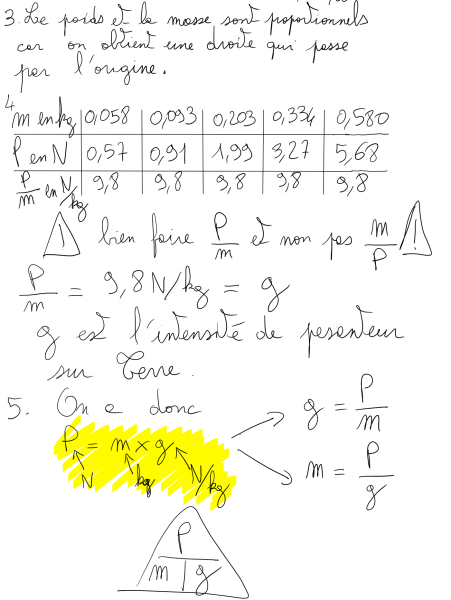 3. Le poids et la masse sont proportionnels
car on obtient une droite qui passe
par l'origine.
4 m en kg 0,058 0,093 0,203 0,334 0,580
P en N 0,57 0,91 1,99 3,27 5,68
P/m en N/kg 9,8 9,8 9,8 9,8 9,8
! bien faire P/m et non pas m/P !
P/m = 9,8 N/kg = g
g est l'intensité de pesanteur
sur Terre.
5. On a donc
g = P/m
P = m × g
N kg N/kg
m = P/g
P
m | g